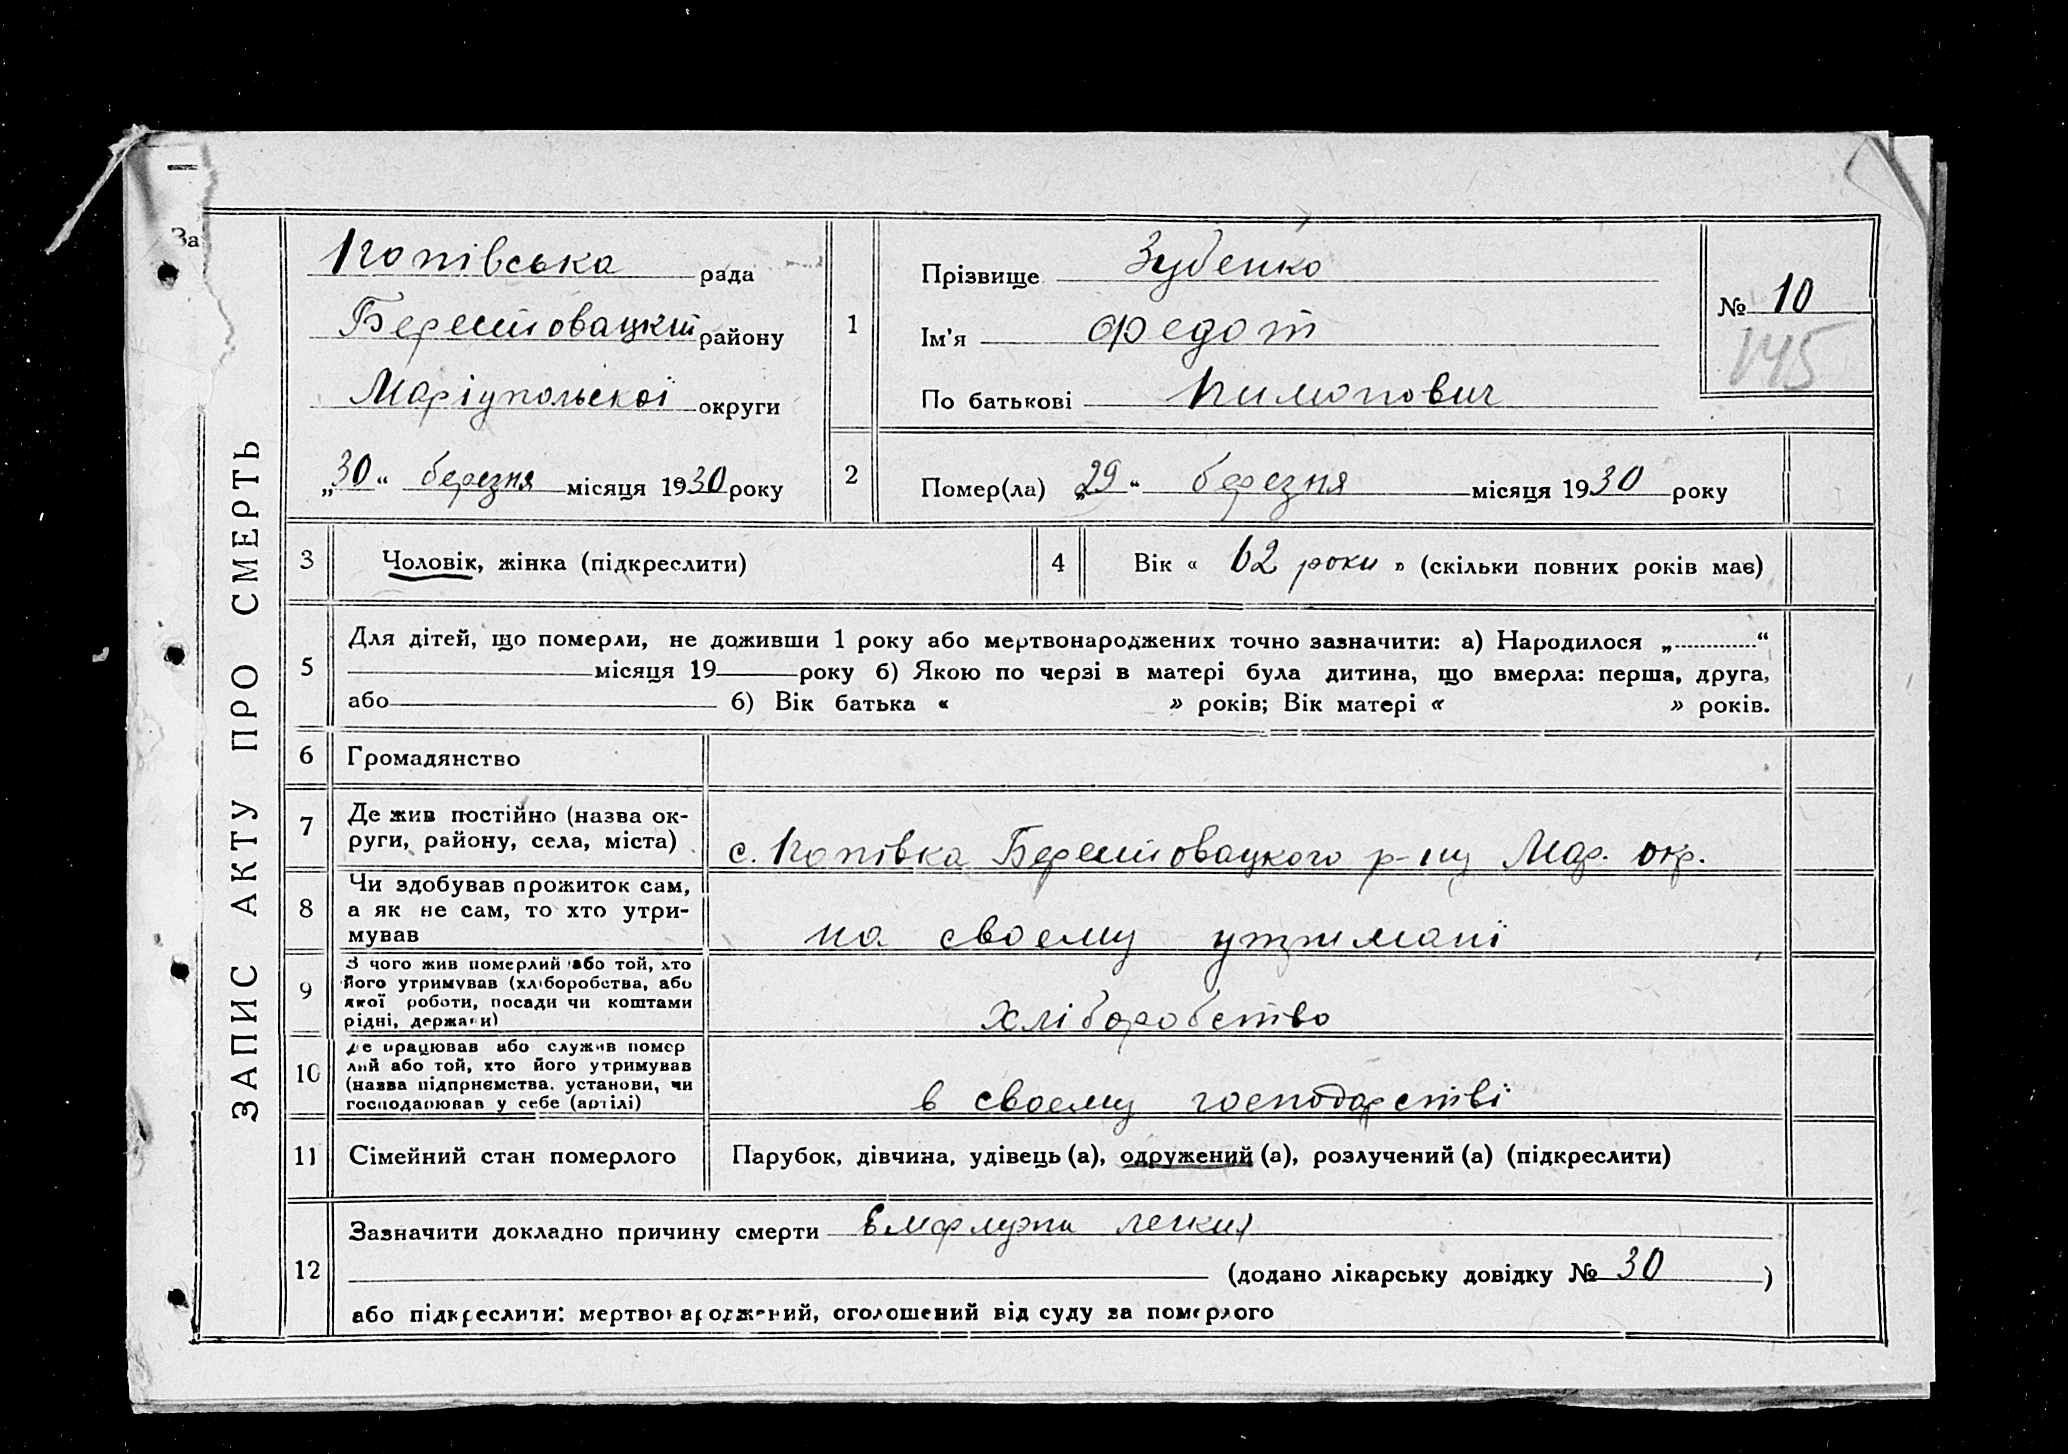 За
ЗАПИС АКТУ ПРО СМЕРТЬ
Копівська рада
Берестовацький району
Маріупольської округи
„30“ березня місяця 1930 року
1
Прізвище Зубенко
Ім'я Федот
По батькові Пимонович
№ 10
145
2
Помер(ла) „29“ березня місяця 1930 року
3
Чоловік, жінка (підкреслити)
4
Вік « 62 роки » (скільки повних років має)
5
Для дітей, що померли, не доживши 1 року або мертвонароджених точно зазначити: а) Народилося „ “
місяця 19 року б) Якою по черзі в матері була дитина, що вмерла: перша, друга,
або б) Вік батька « » років; Вік матері « » років.
6
Громадянство
7
Де жив постійно (назва ок-
руги, району, села, міста)
с. Копівка Берестовацкого р-ну Мар. окр.
8
Чи здобував прожиток сам,
а як не сам, то хто утри-
мував
на своєму утримані
9
З чого жив померлий або той, хто
його утримував (хліборобства, або
якої роботи, посади чи коштами
рідні, держави)
Хліборобство
10
Де працював або служив помер
лий або той, хто його утримував
(назва підприємства, установи, чи
господарював у себе (артілі)
в своему господарстві
11
Сімейний стан померлого
Парубок, дівчина, удівець (а), одружений (а), розлучений (а) (підкреслити)
12
Зазначити докладно причину смерти легких
(додано лікарську довідку № 30 )
або підкреслити: мертвонароджений, оголошений від суду за померлого